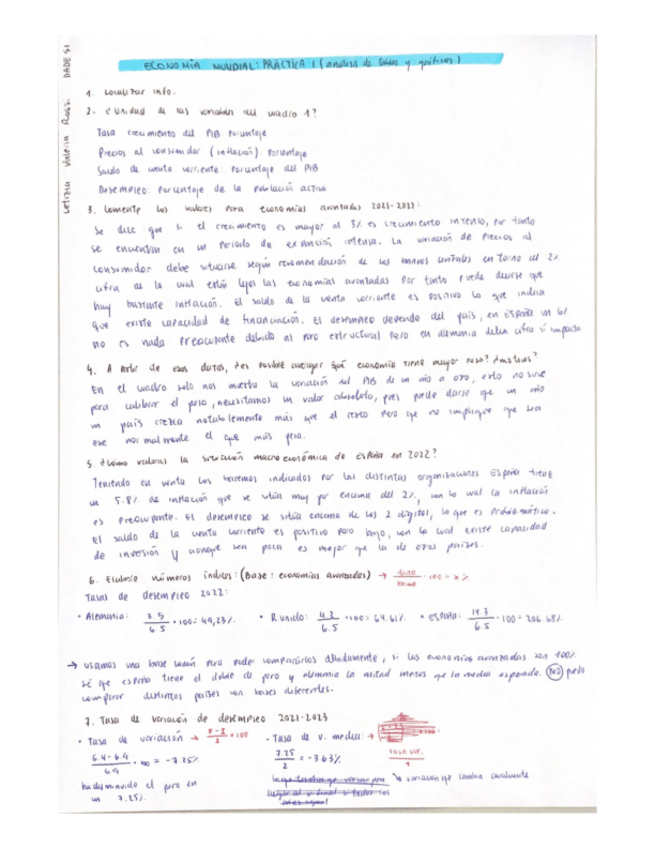 Letizia Valeria Rossi DADE S1
ECONOMÍA MUNDIAL: PRÁCTICA 1 (análisis de tablas y gráficos)
1. Localizar info.
2. ¿Unidad de las variables del cuadro 1?
Tasa crecimiento del PIB porcentaje
Precios al consumidor (inflación) porcentaje
Saldo de cuenta corriente: porcentaje del PIB
Desempleo: porcentaje de la población activa
3. Comente los valores para economías avanzadas 2021-2022:
Se dice que si el crecimiento es mayor al 3% es crecimiento intenso, por tanto
se encuentran en un periodo de expansión intensa. La variación de precios al
consumidor debe situarse según recomendación de los bancos centrales en torno al 2%
cifra de la cual están lejos las economías avanzadas por tanto puede decirse que
hay bastante inflación. El saldo de la cuenta corriente es positivo lo que indica
que existe capacidad de financiación. El desempleo depende del país, en España un 6%
no es nada preocupante debido al paro estructural pero en Alemania dicha cifra sí impacta.
4. A partir de esos datos, ¿es posible averiguar qué economía tiene mayor peso? ¿motivos?
En el cuadro solo nos muestra la variación del PIB de un año a otro, esto no sirve
para calibrar el peso, necesitamos un valor absoluto, pues puede darse que un año
un país crezca notablemente más que el resto pero que no implique que sea
ese normalmente el que más pesa.
5. ¿Cómo valoras la situación macroeconómica de España en 2022?
Teniendo en cuenta los baremos indicados por las distintas organizaciones España tiene
un 5.8% de inflación que se sitúa muy por encima del 2%, con lo cual la inflación
es preocupante. El desempleo se sitúa encima de los 2 dígitos, lo que es problemático.
El saldo de la cuenta corriente es positivo pero bajo, con lo cual existe capacidad
de inversión y aunque sea poca es mejor que la de otros países.
6. Elabore números índices: (Base: economías avanzadas) → dato/base · 100 = x%
Tasas de desempleo 2022:
· Alemania: 3.5/6.5 · 100 = 49,23% · R. unido: 4.2/6.5 · 100 = 64.61% · España: 14.3/6.5 · 100 = 206.48%
→ usamos una base común para poder compararlos debidamente, si las economías avanzadas son 100%
sé que España tiene el doble de paro y Alemania la mitad menos que la media esperada. NO puedo
comparar distintos países con bases diferentes.
7. Tasa de variación de desempleo 2021-2023
· Tasa de variación → · 100 · Tasa de v. media: →
6.4 - 6.9/6.9 · 100 = -7.25% 7.25/2 = -3.63% TASA VAR.
ha disminuido el paro en ↳ variación que cambia anualmente
un 7.25%.